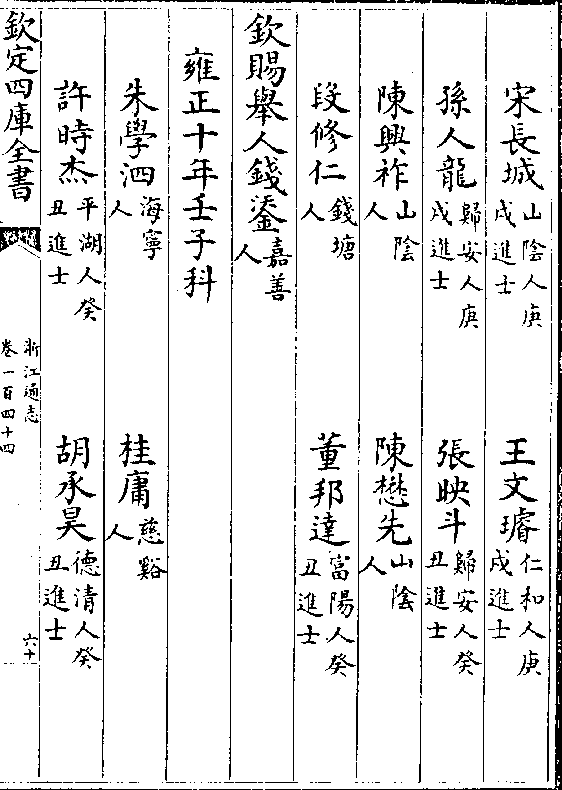 宋長城山陰人庚戌進士 王文璿仁和人庚戌進士
孫人龍歸安人庚戌進士 張映斗歸安人癸丑進士
陳興祚山陰人 陳懋先山陰人
段修仁錢塘人 董邦達富陽人癸丑進士
欽賜舉人錢鋈嘉善人
雍正十年壬子科
朱學泗海寧人 桂庸慈谿人
許時杰平湖人癸丑進士 胡承昊德清人癸丑進士
欽定四庫全書 浙江通志卷一百四十四 六十